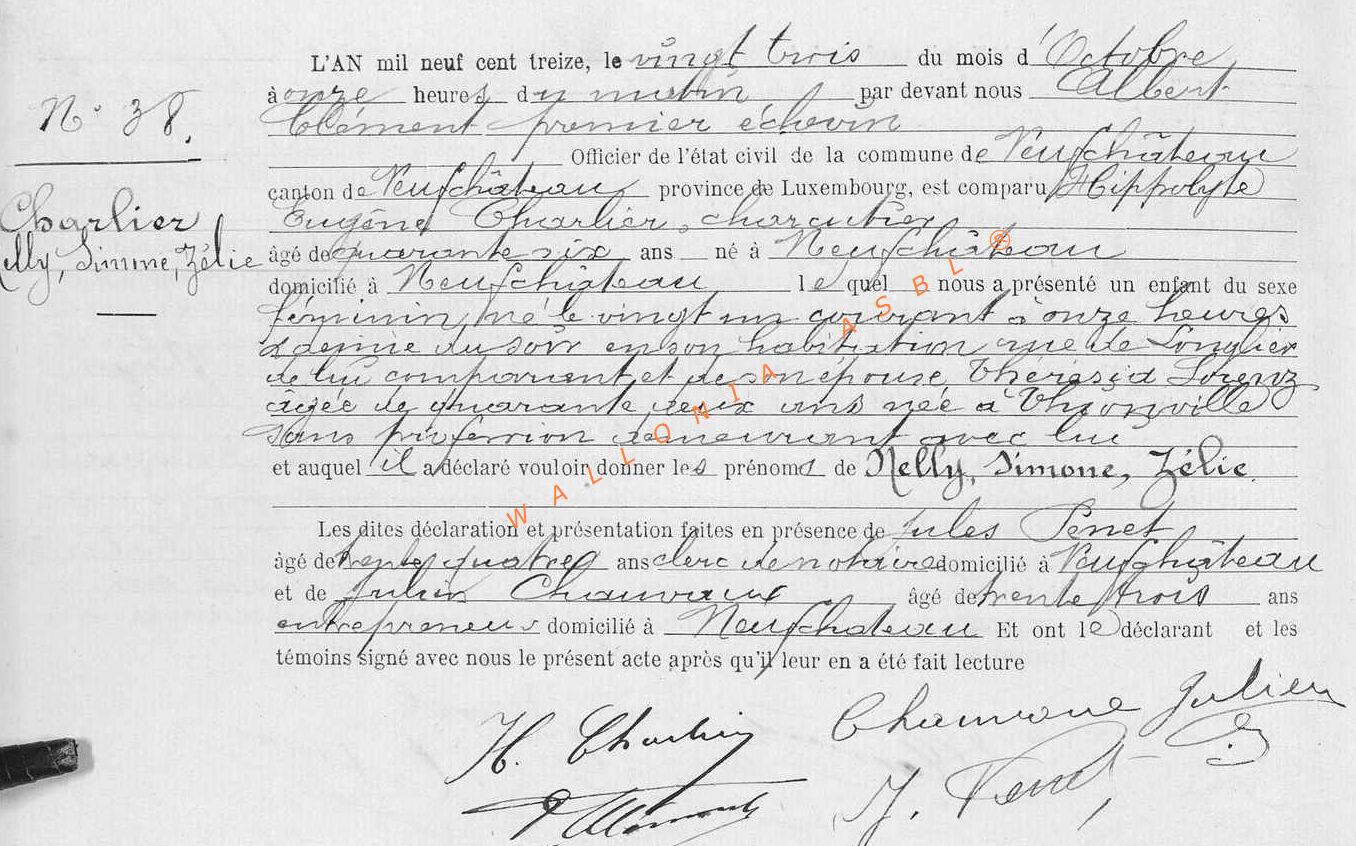 N° 38.
Charlier
Nelly, Simone, Zélie
L'AN mil neuf cent treize, le vingt trois du mois d'Octobre
à onze heures du matin par devant nous Albert
Clément premier échevin
Officier de l'état civil de la commune de Neufchâteau
canton de Neufchâteau province de Luxembourg, est comparu Hippolyte
Eugène Charlier, charcutier
âgé de quarante six ans né à Neufchâteau
domicilié à Neufchâteau lequel nous a présenté un enfant du sexe
féminin, né le vingt un courant à onze heures
& demie du soir en son habitation, rue de Longlier
de lui comparant et de son épouse, Thérésia Lorenz
âgée de quarante deux ans née à Thionville
sans profession demeurant avec lui
et auquel il a déclaré vouloir donner les prénoms de Nelly, Simone, Zélie.
Les dites déclaration et présentation faites en présence de Jules Penet
âgé de trente quatre ans clerc de notaire domicilié à Neufchâteau
et de Julien Chauvaux âgé de trente trois ans
entrepreneur domicilié à Neufchateau Et ont le déclarant et les
témoins signé avec nous le présent acte après qu'il leur en a été fait lecture
H. Charlier Chauvaux Julien
J. Penet
WALLONIA ASBL ®